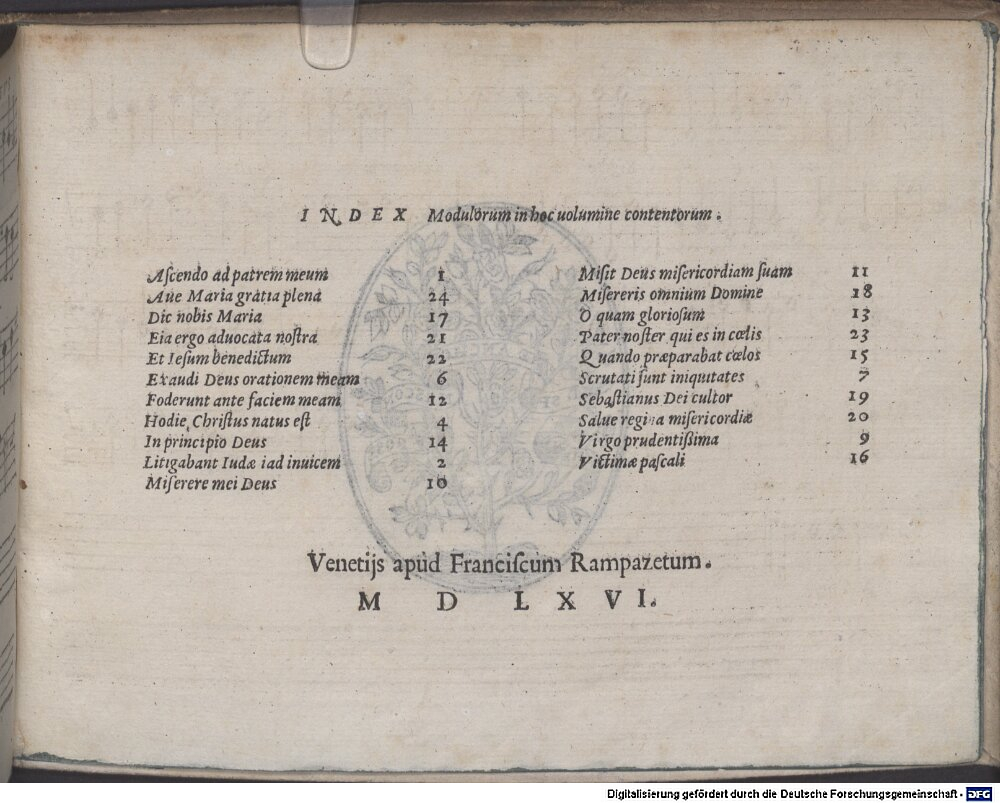 INDEX Modulorum in hoc uolumine contentorum.
Aſcendo ad patrem meum 1
Aue Maria gratia plena 24
Dic nobis Maria 17
Eia ergo aduocata noſtra 21
Et Ieſum benedictum 22
Exaudi Deus orationem meam 6
Foderunt ante faciem meam 12
Hodie Chriſtus natus eſt 4
In principio Deus 14
Litigabant Iudæ iad inuicem 2
Miſerere mei Deus 10
Miſit Deus miſericordiam ſuam 11
Miſereris omnium Domine 18
O quam glorioſum 13
Pater noſter qui es in cœlis 23
Quando præparabat cœlos 15
Scrutati ſunt iniquitates 7
Sebaſtianus Dei cultor 19
Salue regina miſericordiæ 20
Virgo prudentiſsima 9
Victimæ paſcali 16
Venetijs apud Franciſcum Rampazetum.
M D LXVI.
Digitalisierung gefördert durch die Deutsche Forschungsgemeinschaft - DFG